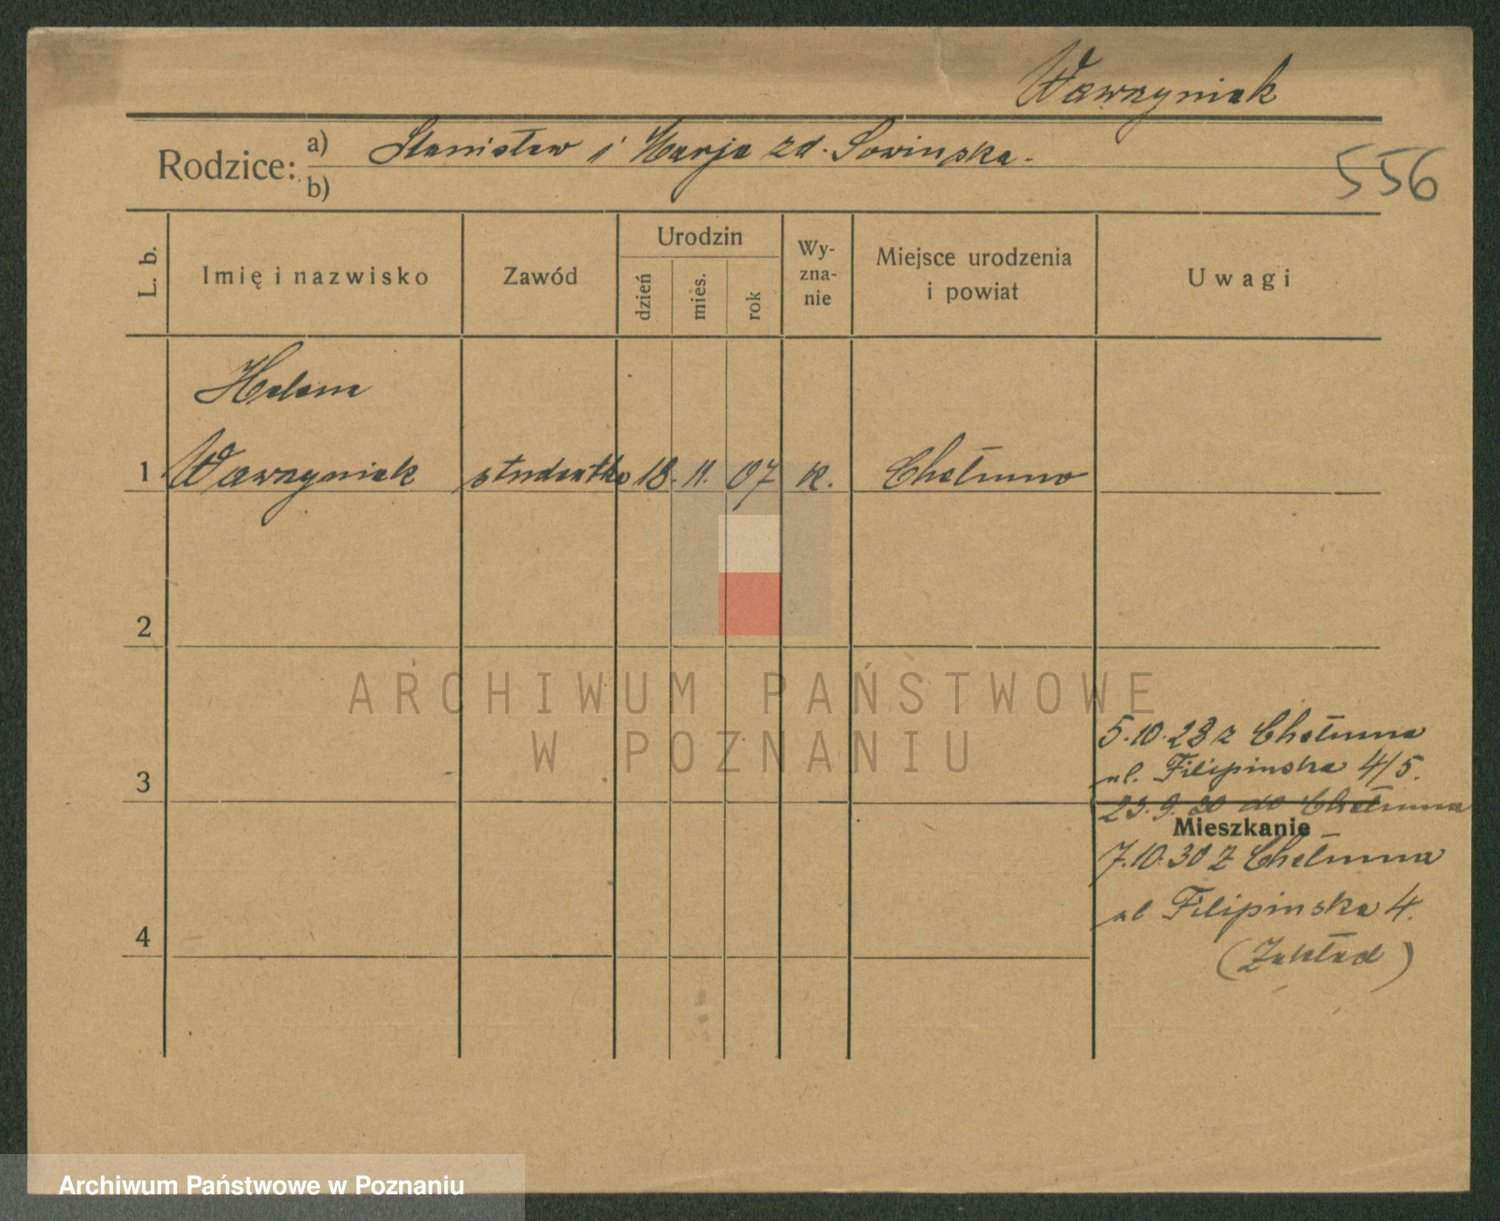 Wawrzyniak
Rodzice: a) Stanisław i Marja zd. Sowinska.
b)
556
L. b.
Imię i nazwisko
Zawód
Urodzin
dzień
mies.
rok
Wy-
zna-
nie
Miejsce urodzenia
i powiat
Uwagi
Helena
1 Wawrzyniak studentka 18. 11. 07 k. Chełmno
2
ARCHIWUM PAŃSTWOWE
W POZNANIU
3
5.10.28 z Chełmna
ul. Filipinska 4/5.
23.9.30 do Chełmna
Mieszkanie
7.10.30 z Chełmna
ul Filipinska 4.
4
(Zakład)
Archiwum Państwowe w Poznaniu